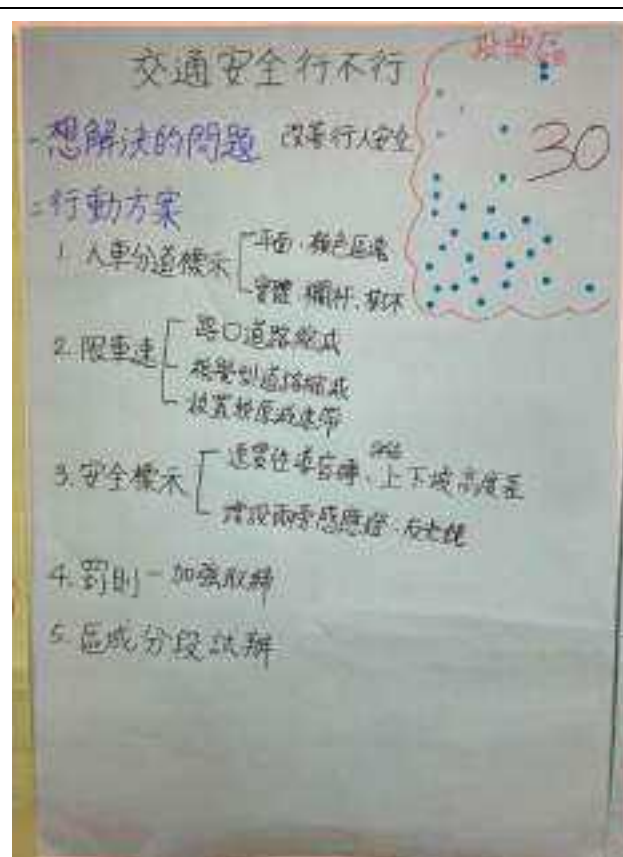 交通安全行不行
投票區
30
一想解決的問題 改善行人安全
二行動方案
1. 人車分道標示
平面、顏色區隔
實體、欄杆、樹木
2. 限車速
路口道路縮減
視覺型道路縮減
設置 減速帶
3. 安全標示
連貫性導盲磚、上下坡高度差
增設雨雪感應燈、反光鏡
4. 罰則-加強取締
5. 區域分段試辦